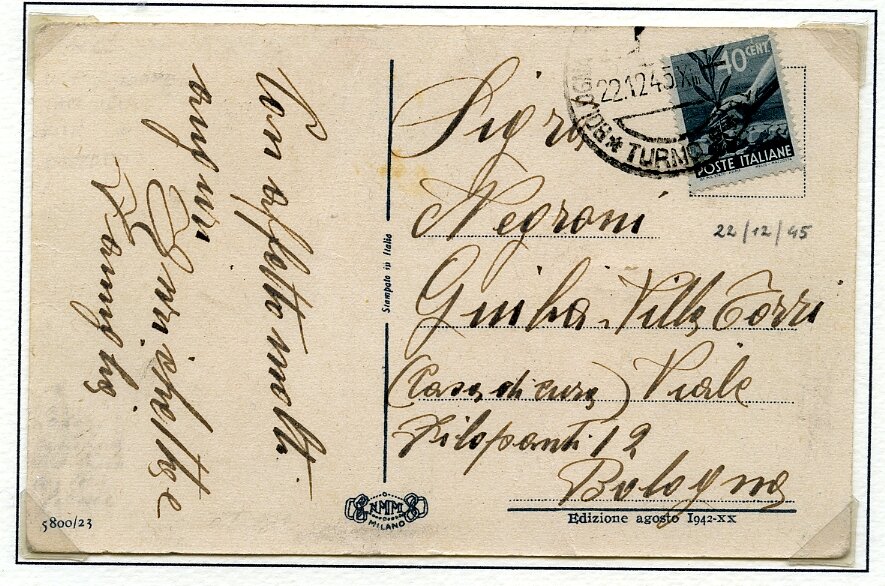 Con affetto molti
auguri
Enrichetta e
Famiglia
Stampata in Italia
5800/23
NMM
MILANO
22.12.45.X
TURNO
10 CENT.
POSTE ITALIANE
22/12/45
Sigra
Negroni
Giulia. Villa Torri
(Casa di cura) Viale
Filopanti 12
Bologna
Edizione agosto 1942-XX